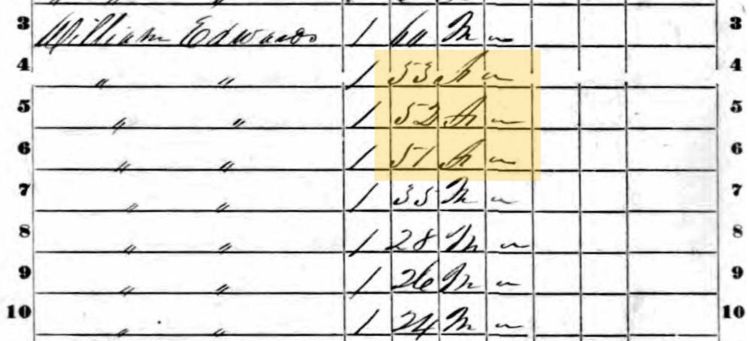 3 William Edwards 1 60 M " 3
4 " " 1 53 F " 4
5 " " 1 52 F " 5
6 " " 1 51 F " 6
7 " " 1 35 M " 7
8 " " 1 28 M " 8
9 " " 1 26 M " 9
10 " " 1 24 M " 10